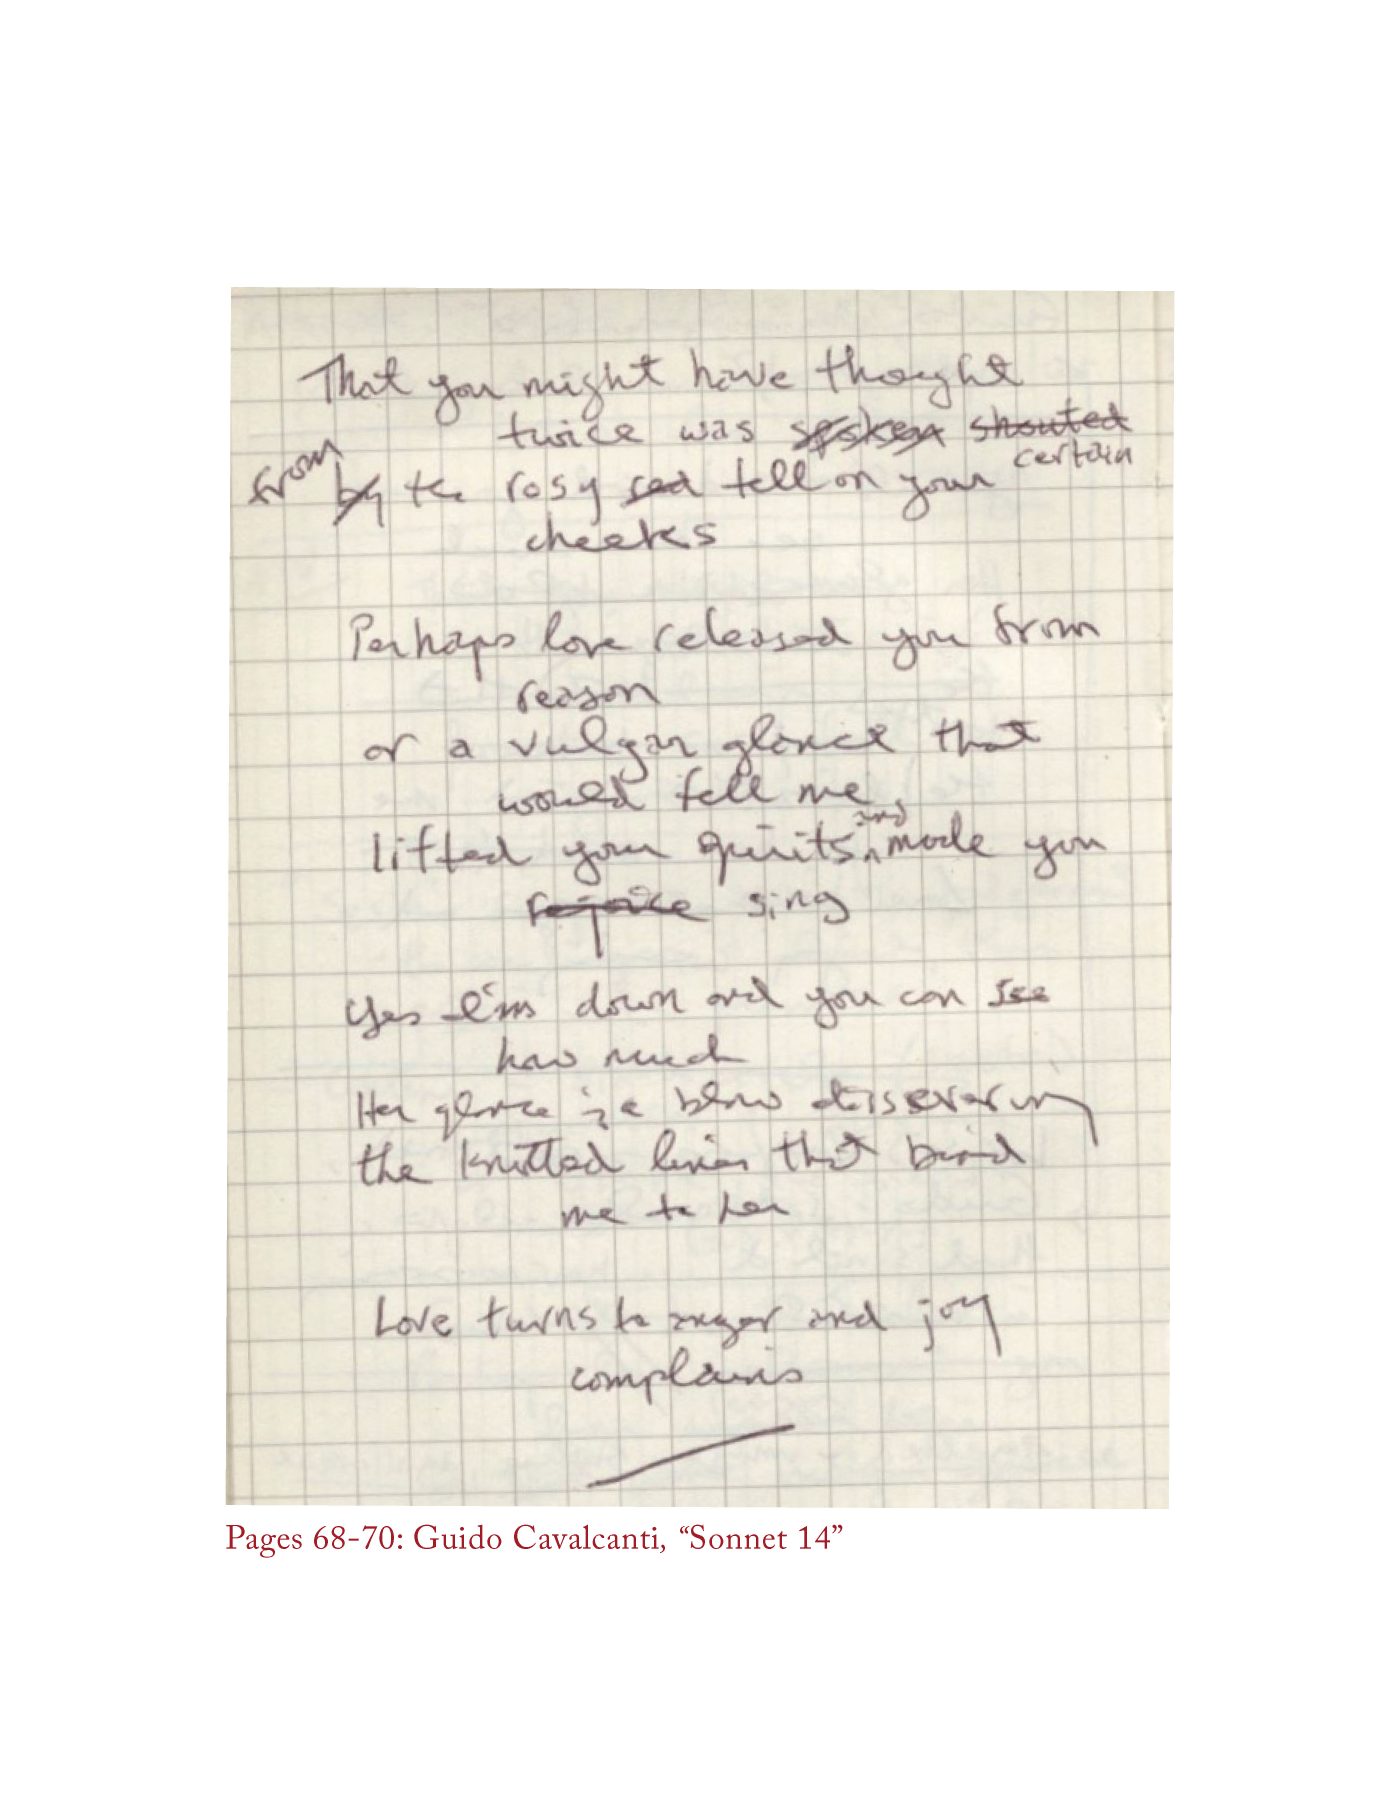 That you might have thought
twice was spoken shouted
certain
from by the rosy red tell on your
cheeks
Perhaps love released you from
reason
or a vulgar glance that
would tell me,
lifted your spirits, and made you
rejoice sing
Yes I'm down and you can see
how much
Her glance is a blow dissevering
the knitted lines that bind
me to her
Love turns to anger and joy
complains
Pages 68-70: Guido Cavalcanti, “Sonnet 14”